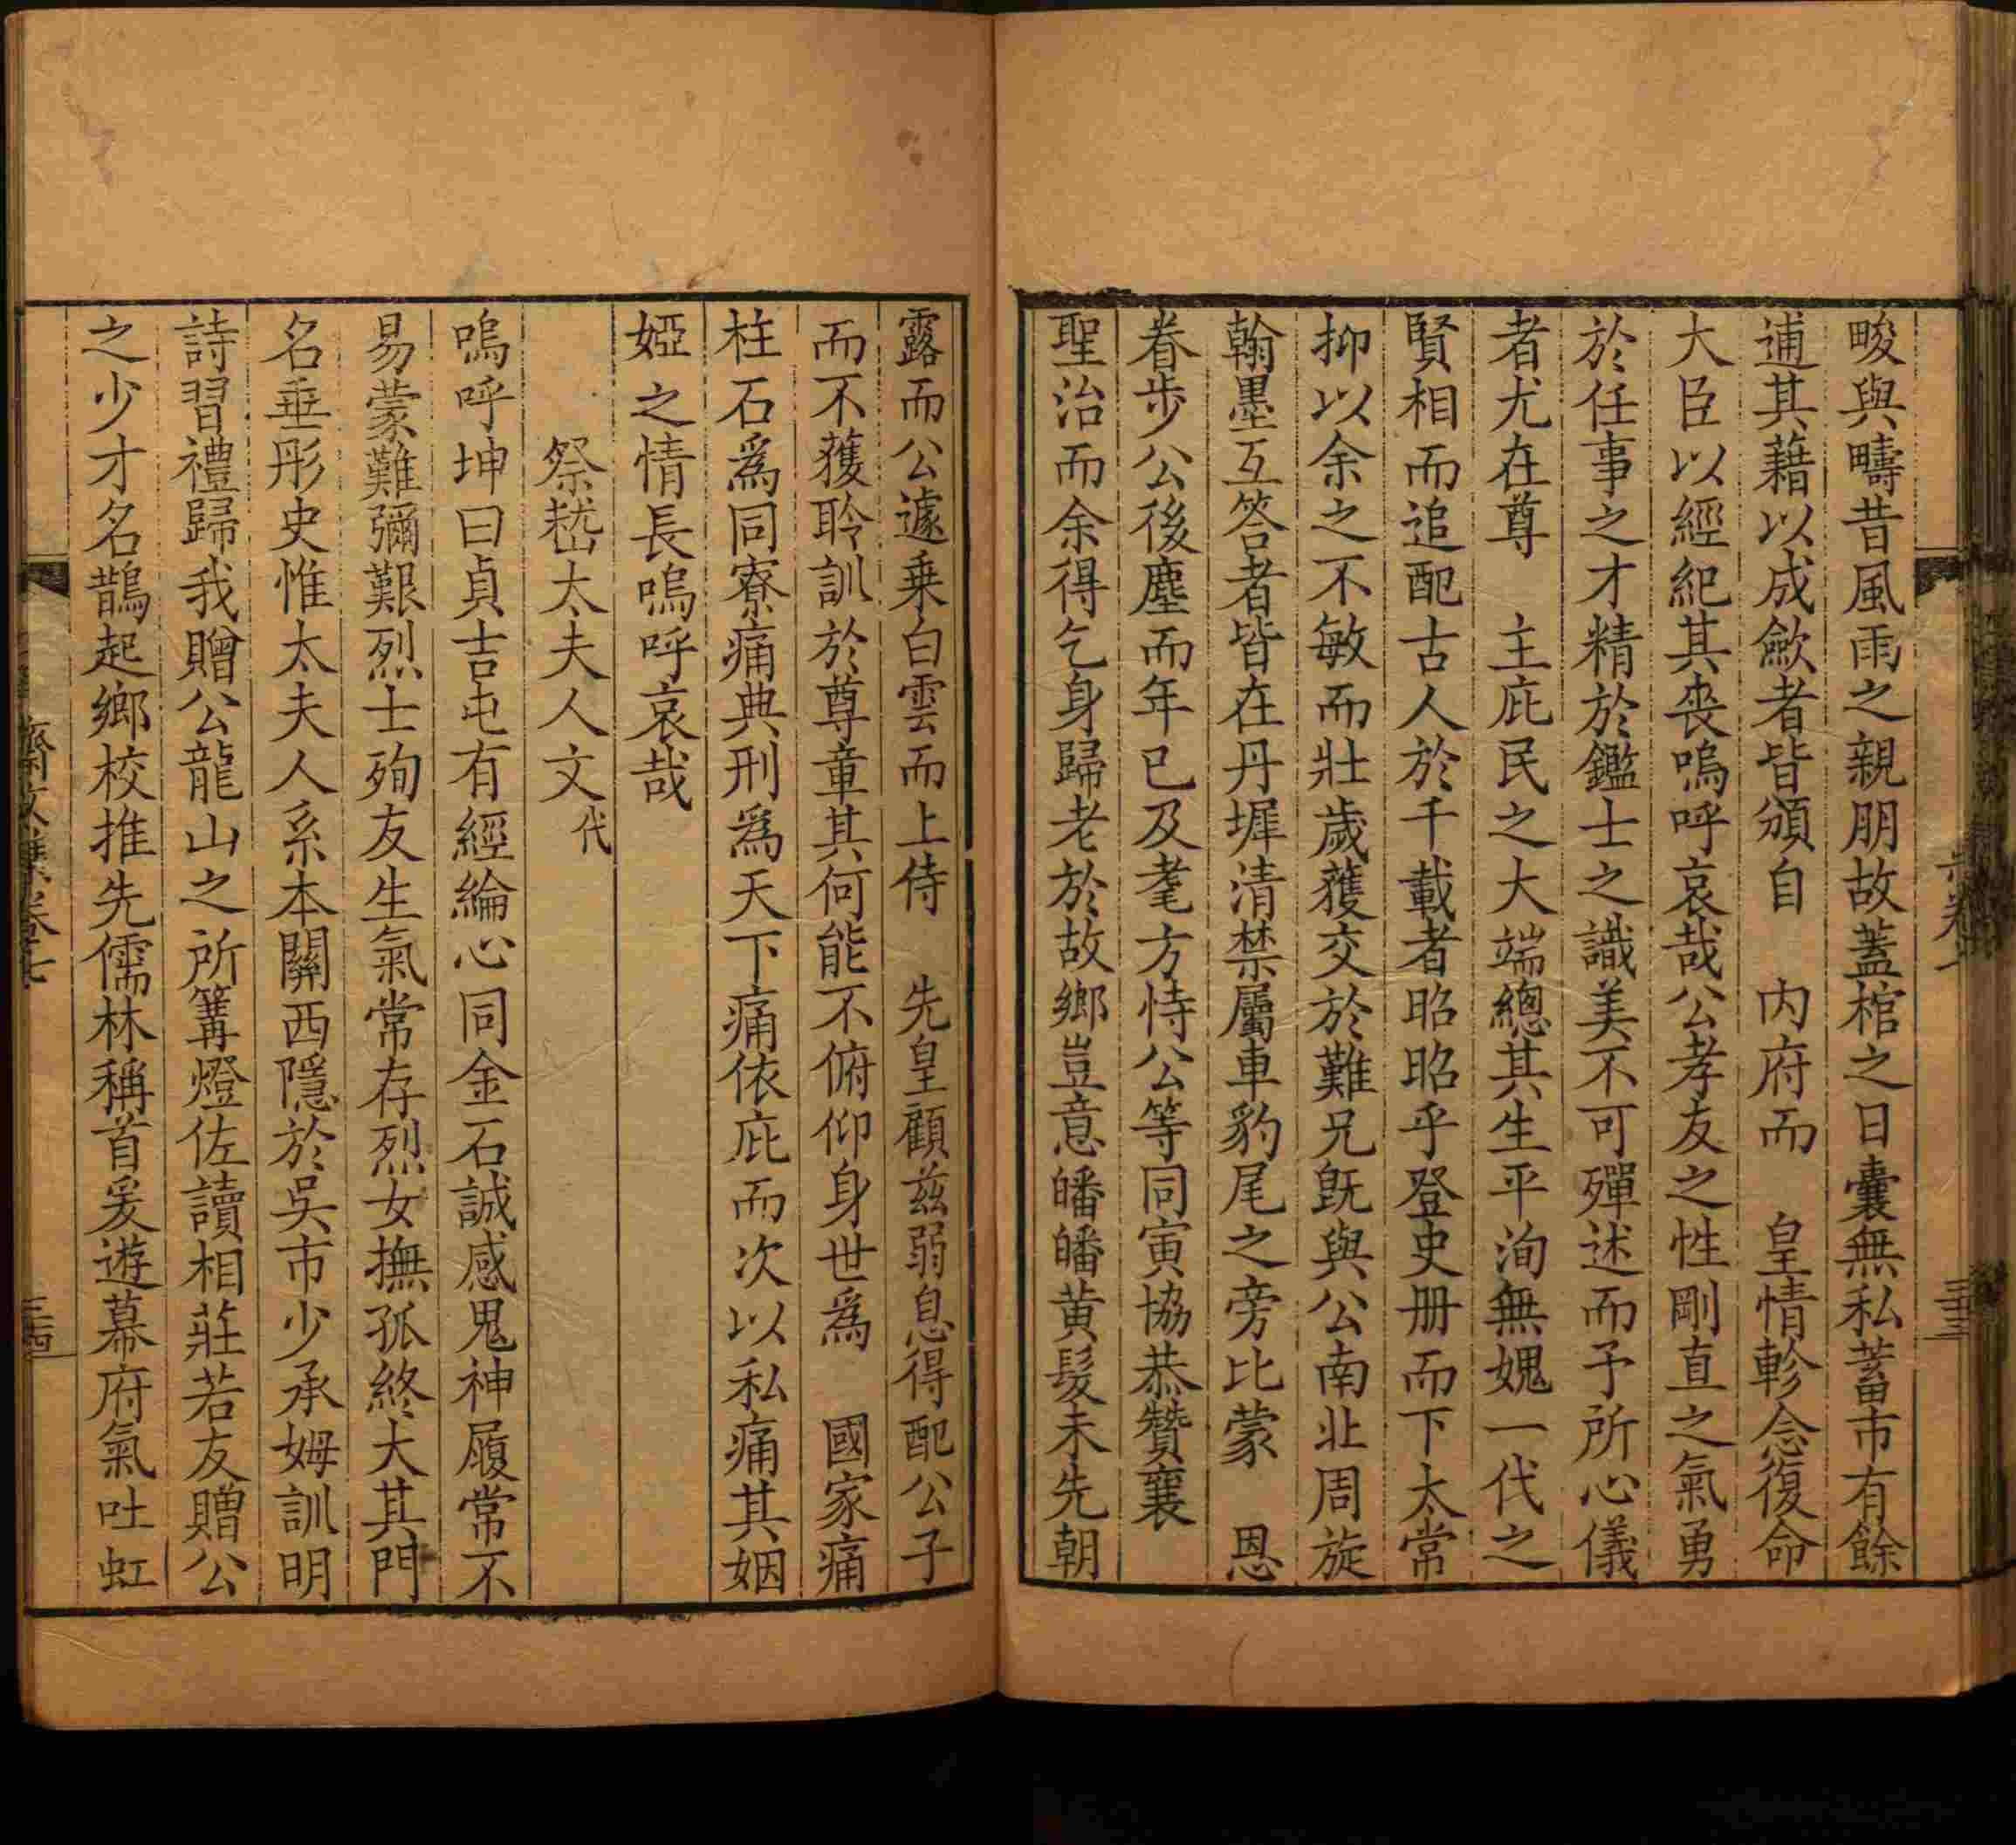 畯與疇昔風雨之親朋故蓋棺之日囊無私蓄市有餘
逋其藉以成歛者皆頒自　内府而　皇情軫念復命
大臣以經紀其喪嗚呼哀哉公孝友之性剛直之氣勇
於任事之才精於鑑士之識美不可殫述而予所心儀
者尤在尊　主庇民之大端總其生平洵無媿一代之
賢相而追配古人於千載者昭昭乎登史册而下太常
抑以余之不敏而壯歲獲交於難兄既與公南北周旋
翰墨互答者皆在丹墀清禁屬車豹尾之旁比蒙　恩
眷步公後塵而年已及耄方恃公等同寅協恭贊襄
聖治而余得乞身歸老於故鄉豈意皤皤黄髮未先朝
露而公遽乗白雲而上侍　先皇顧茲弱息得配公子
而不獲聆訓於尊章其何能不俯仰身世爲　國家痛
柱石爲同寮痛典刑爲天下痛依庇而次以私痛其姻
婭之情長嗚呼哀哉
祭嵇太夫人文代
嗚呼坤曰貞吉屯有經綸心同金石誠感鬼神履常不
易蒙難彌艱烈士殉友生氣常存烈女撫孤終大其門
名垂彤史惟太夫人系本關西隱於吳市少承姆訓明
詩習禮歸我贈公龍山之所篝燈佐讀相莊若友贈公
之少才名鵲起鄉校推先儒林稱首爰遊幕府氣吐虹
三十四